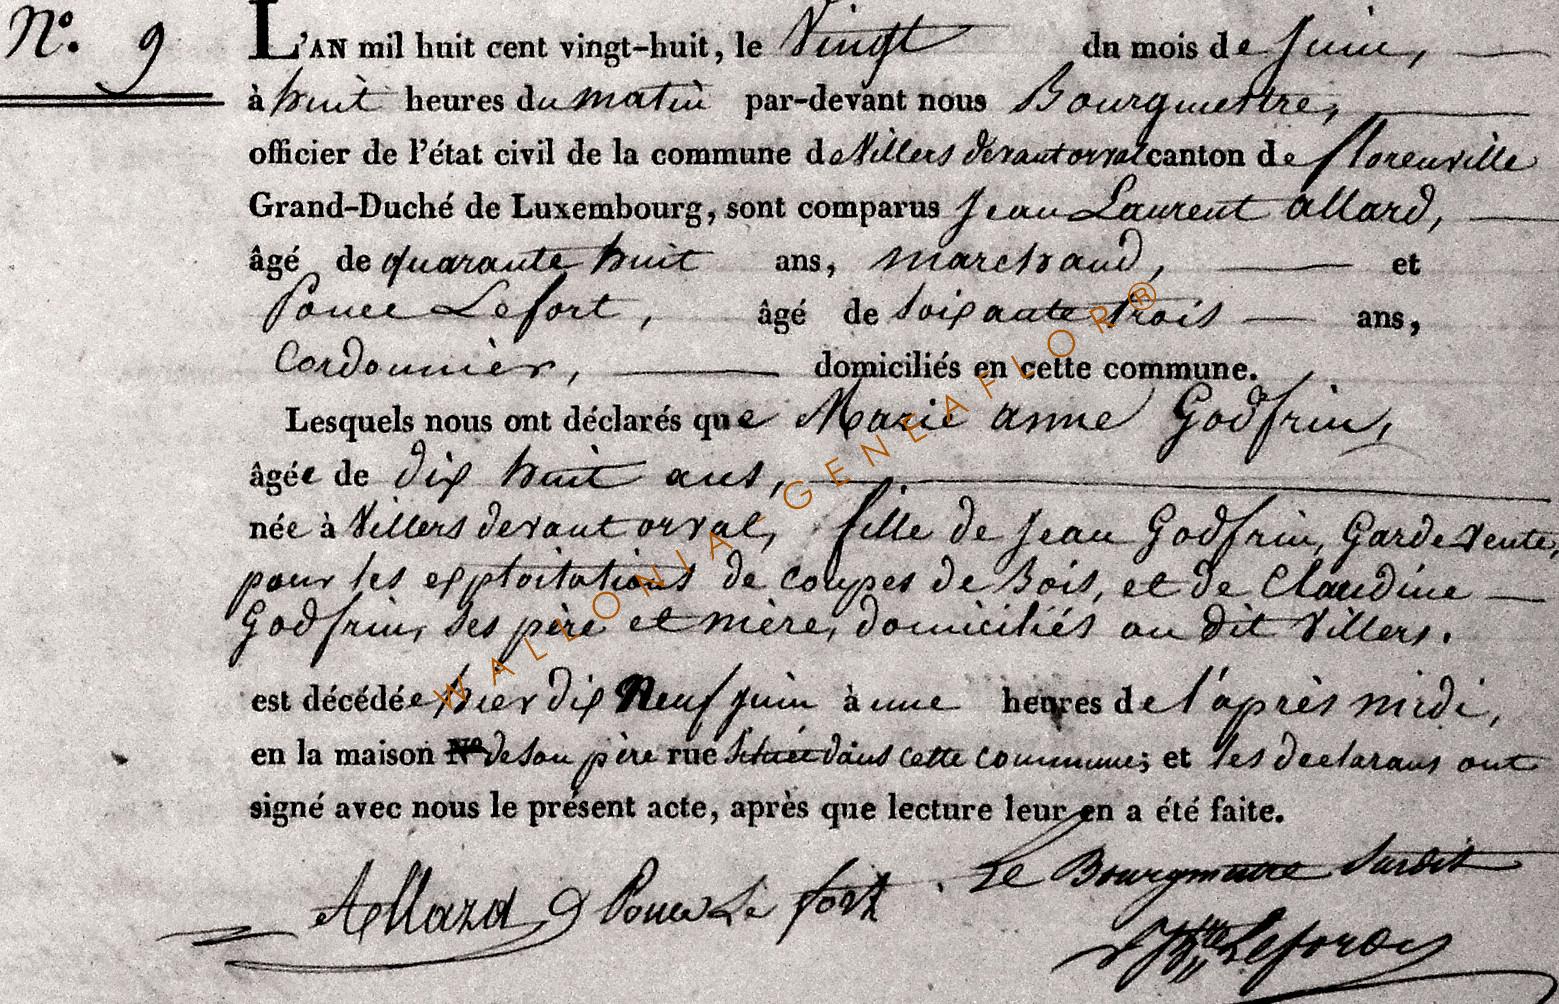 N.° 9
L'AN mil huit cent vingt-huit, le Vingt du mois de Juin,
à huit heures du matin par-devant nous Bourgmestre,
officier de l'état civil de la commune de Villers devant orval canton de florenville
Grand-Duché de Luxembourg, sont comparus Jean Laurent allard,
âgé de quarante huit ans, marchand, et
Ponce Lefort, âgé de soixante trois ans,
Cordonnier, domiciliés en cette commune.
Lesquels nous ont déclarés que Marie anne Godfrin,
âgée de dix huit ans,
née à Villers devant orval, fille de Jean Godfrin, Garde vente,
pour les exploitations de coupes de Bois, et de Claudine
Godfrin, ses père et mère, domiciliés au dit Villers.
est décédée hier dix Neuf juin à une heures de l'après midi,
en la maison N° de son père rue située dans cette commune; et les declarans ont
signé avec nous le présent acte, après que lecture leur en a été faite.
Allard Ponce Le fort Le Bourgmestre Susdit
WALLONIA-GENEAFLOR®